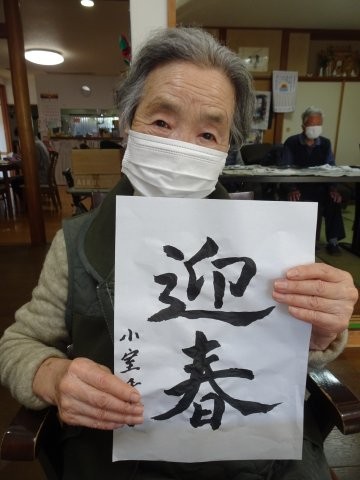 迎春
小室